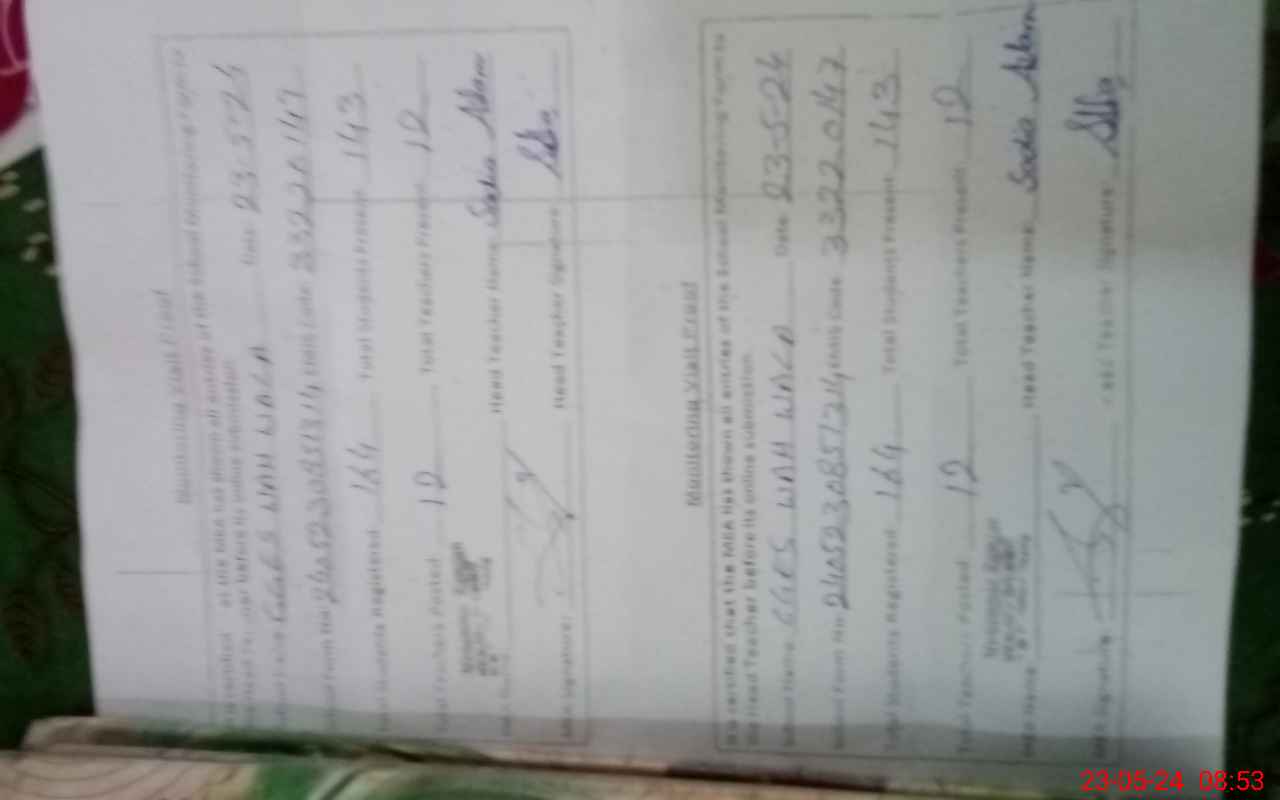 Monitoring Visit Proof
at the MEA has shown all entries of the School Monitoring Form to
Head Teacher before its online submission.
School Name GGES WAH WALA Date 23-5-24
School Form No 2405230851314 EMIS Code 33220147
Total Students Registered 164 Total Students Present 143
Total Teachers Posted 12 Total Teachers Present 12
Head Teacher Name Sadia Aslam
MEA Signature: Head Teacher Signature
Monitoring Visit Proof
It is certified that the MEA has shown all entries of the School Monitoring Form to
the Head Teacher before its online submission.
School Name GGES WAH WALA Date 23-5-24
School Form No 2405230851314 EMIS Code 33220147
Total Students Registered 164 Total Students Present 143
Total Teachers Posted 12 Total Teachers Present 12
MEA Name Head Teacher Name Sadia Aslam
MEA Signature Head Teacher Signature
23-05-24 08:53